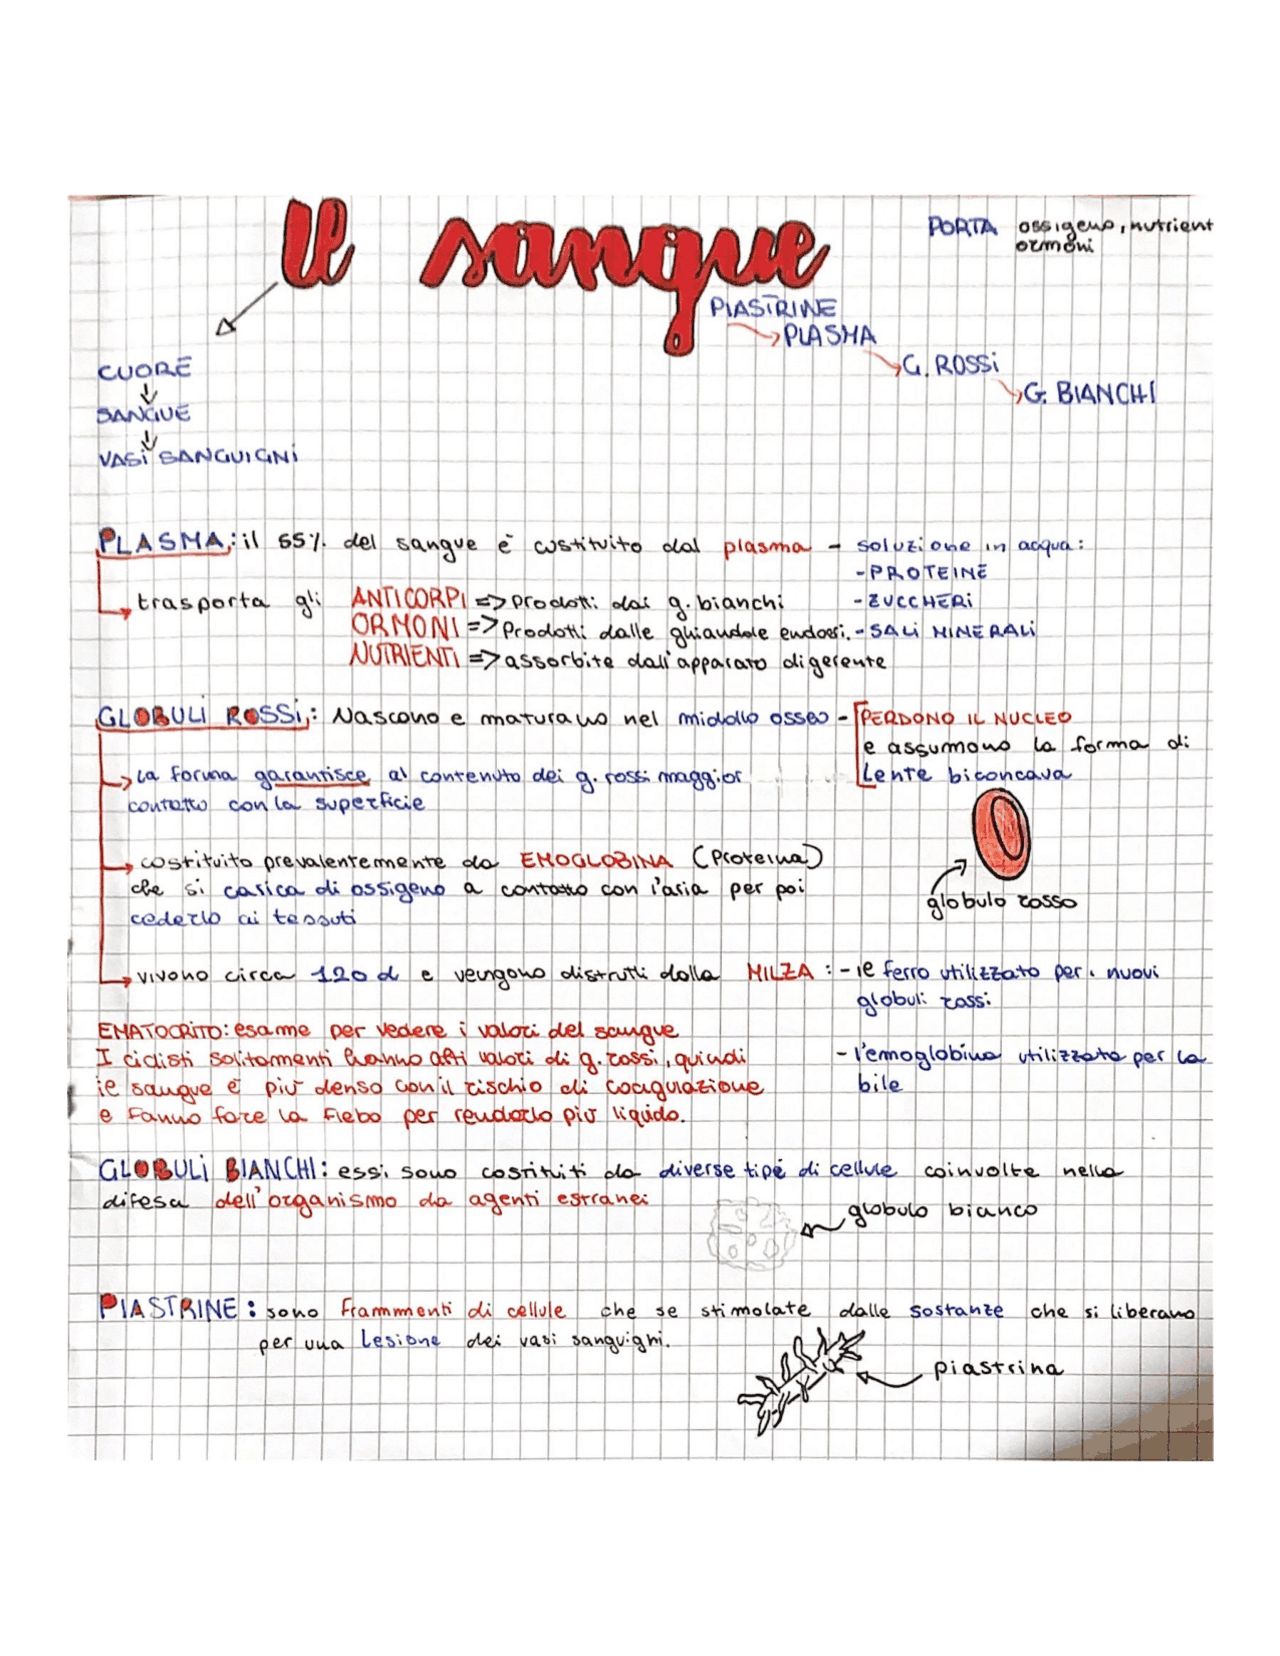 Il sangue
PORTA ossigeno, nutrient
ormoni
PIASTRINE
PLASMA
G. ROSSi
G. BIANCHI
CUORE
SANGUE
VASi SANGUIGNi
PLASMA: il 55% del sangue è costituito dal plasma - soluzione in acqua:
-PROTEINE
trasporta gli ANTICORPI => Prodotti dai g. bianchi -ZUCCHERi
ORMONI => Prodotti dalle ghiandole endocri. -SALi MINERALi
NUTRIENTI => assorbite dall'apparato digerente
GLOBULi ROSSi: Nascono e maturano nel midollo osseo - PERDONO IL NUCLEO
e assumono la forma di
Lente biconcava
La forma garantisce al contenuto dei g. rossi maggior
contatto con la superficie
costituito prevalentemente da EMOGLOBINA (Proteina)
che si carica di ossigeno a contatto con l'aria per poi
cederlo ai tessuti
globulo rosso
vivono circa 120 d e vengono distrutti dalla MILZA: - il ferro utilizzato per i nuovi
globuli rossi
EMATOCRITO: esame per vedere i valori del sangue
I ciclisti solitamenti hanno alti valori di g. rossi, quindi - l'emoglobina utilizzata per la
il sangue è più denso con il rischio di coagulazione bile
e fanno fare la flebo per renderlo più liquido.
GLOBULi BIANCHI: essi sono costituiti da diverse tipe di cellule coinvolte nella
difesa dell'organismo da agenti estranei
globulo bianco
PIASTRINE: sono frammenti di cellule che se stimolate dalle sostanze che si liberano
per una Lesione dei vasi sanguigni.
piastrina